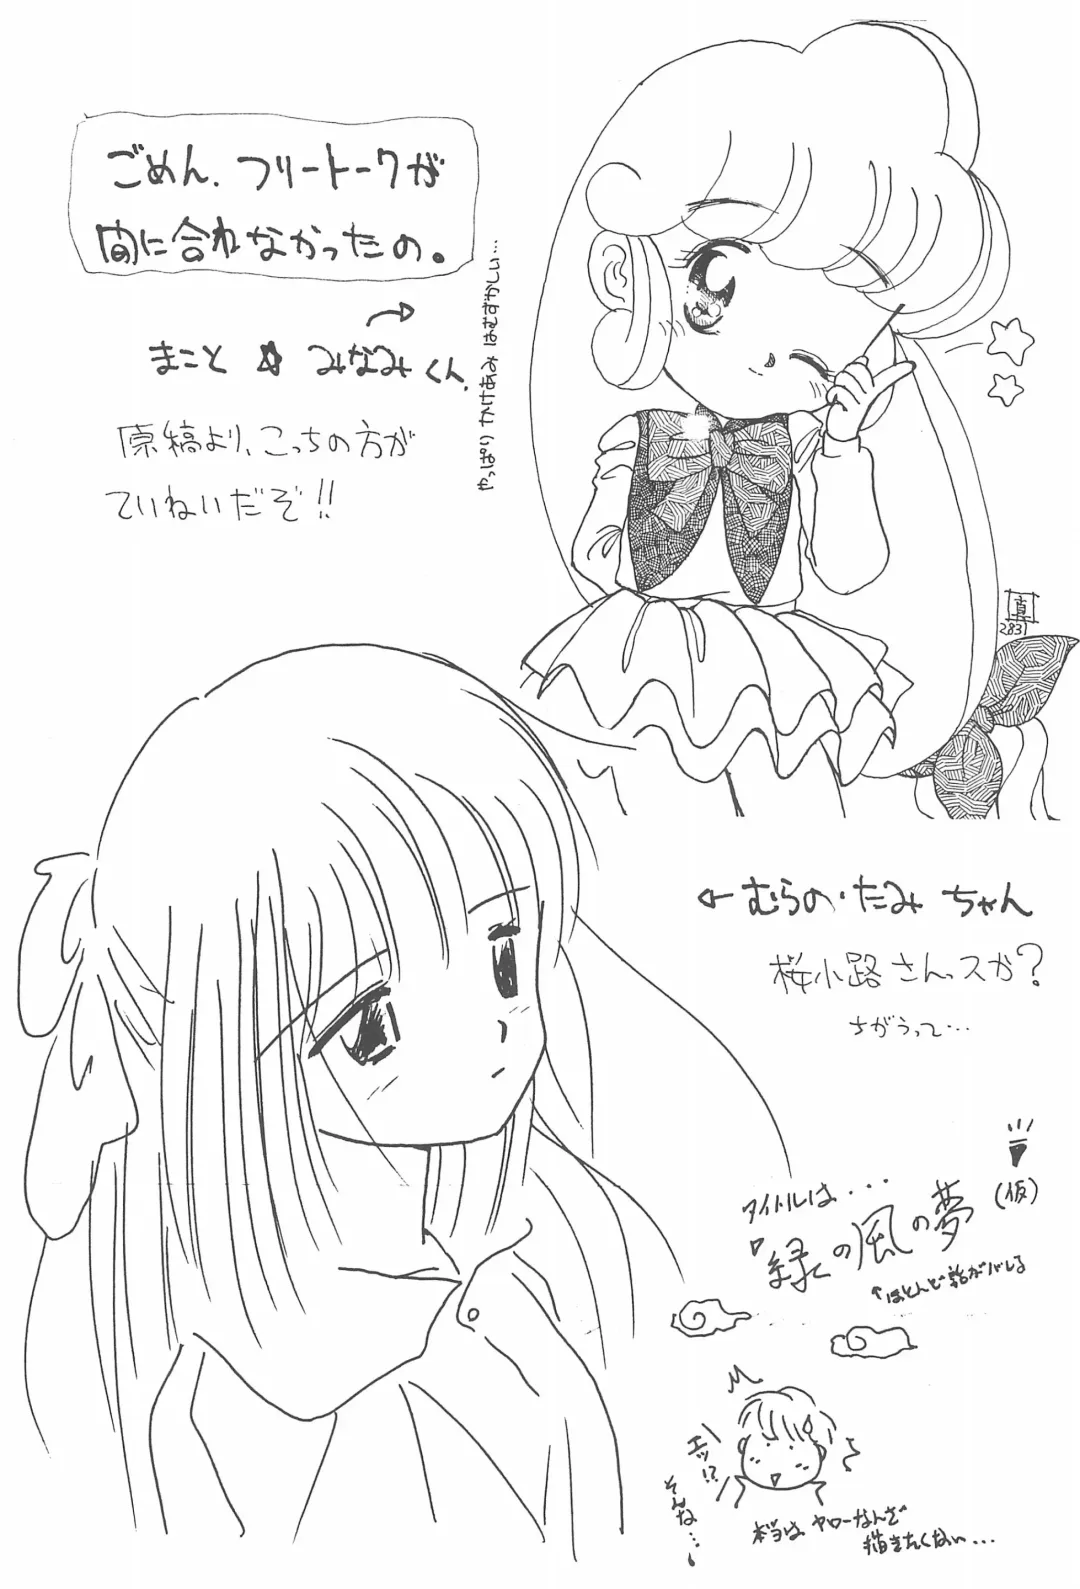 ごめん、フリートークが
間に合れなかったの。
まこと ☆ みなみくん
原稿より、こっちの方が
ていねいだぞ!!
やっぱり かけあみ はむずかしい…
真
283
←むらの・たみ ちゃん
桜小路さんっスか?
さがうって…
タイトルは・・・
『緑の風の夢』(仮)
↑ほとんど話がバレる
エッ!?
そんな…
本当は ヤローなんざ
描きたくない…